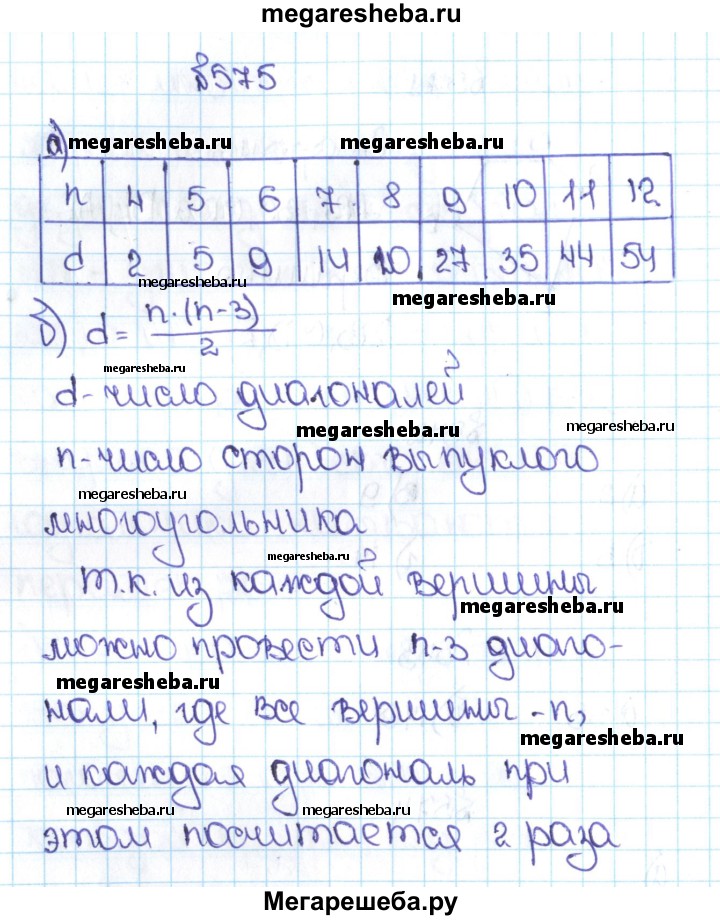 megaresheba.ru
№575
а) megaresheba.ru megaresheba.ru
n 4 5 6 7 8 9 10 11 12
d 2 5 9 14 20 27 35 44 54
megaresheba.ru megaresheba.ru
б) d = n·(n-3)/2
megaresheba.ru
d - число диагоналей
megaresheba.ru megaresheba.ru
n - число сторон выпуклого
megaresheba.ru
многоугольника
megaresheba.ru
т.к. из каждой вершины
megaresheba.ru
можно провести n-3 диаго-
megaresheba.ru
нали, где все вершины - n,
megaresheba.ru
и каждая диагональ при
megaresheba.ru megaresheba.ru
этом посчитается 2 раза
Мегарешеба.ру